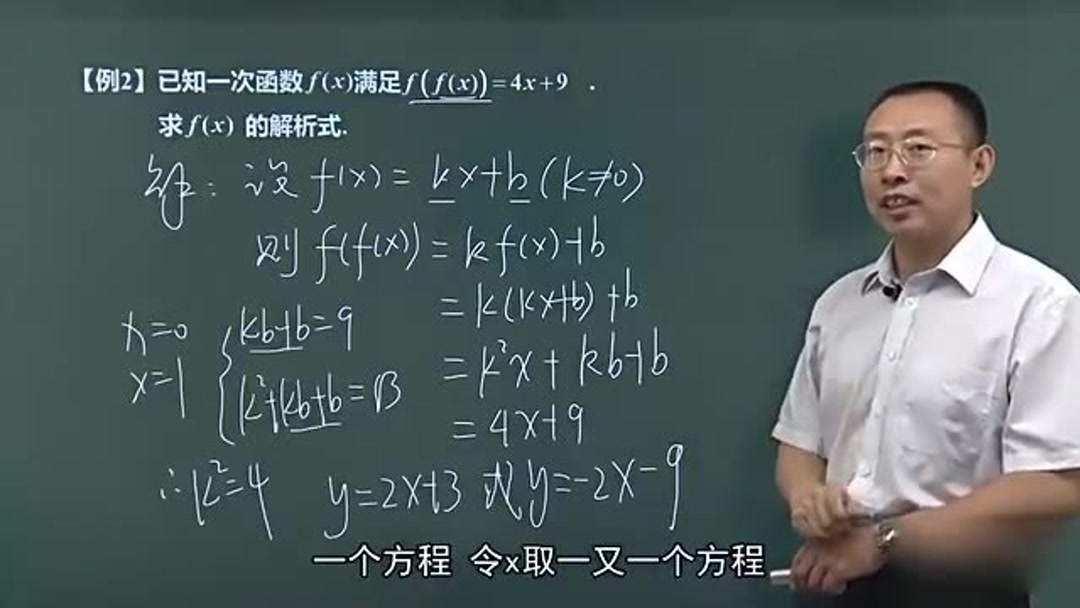 【例2】已知一次函数f(x)满足f(f(x))=4x+9 .
求f(x) 的解析式.
解：设 f(x) = kx+b (k≠0)
则 f(f(x)) = kf(x)+b
= k(kx+b)+b
x=0 kb+b=9
= k²x+kb+b
x=1 k²+kb+b=13
= 4x+9
∴k²=4 y=2x+3 或 y=-2x-9
一个方程 令x取一又一个方程